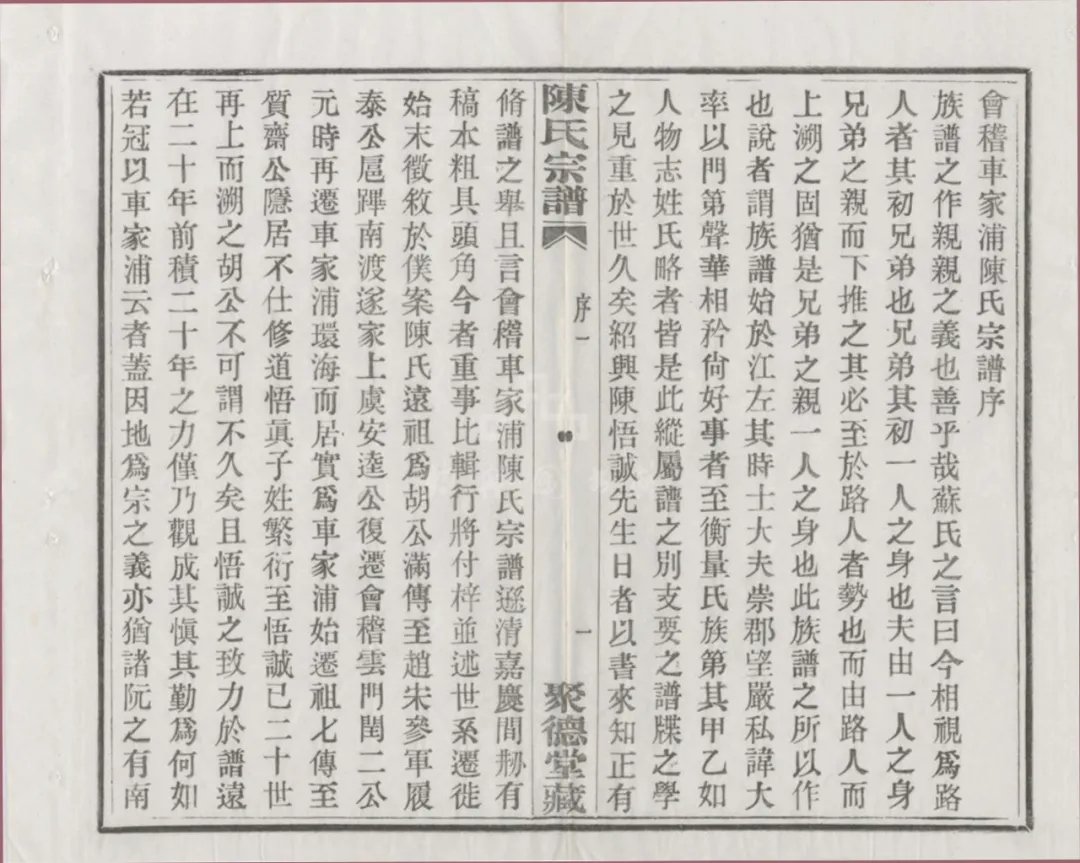 會稽車家浦陳氏宗譜序
族譜之作親親之義也善乎哉蘇氏之言曰今相視爲路
人者其初兄弟也兄弟其初一人之身也夫由一人之身
兄弟之親而下推之其必至於路人者勢也而由路人而
上溯之固猶是兄弟之親一人之身也此族譜之所以作
也說者謂族譜始於江左其時士大夫崇郡望嚴私諱大
率以門第聲華相矜尙好事者至衡量氏族第其甲乙如
人物志姓氏略者皆是此縱屬譜之別支要之譜牒之學
之見重於世久矣紹興陳悟誠先生日者以書來知正有
陳氏宗譜
序一
一
聚德堂藏
脩譜之舉且言會稽車家浦陳氏宗譜遜清嘉慶間剙有
稿本粗具頭角今者重事比輯行將付梓並述世系遷徙
始末徵敘於僕案陳氏遠祖爲胡公滿傳至趙宋參軍履
泰公扈蹕南渡遂家上虞安逵公復遷會稽雲門閏二公
元時再遷車家浦環海而居實爲車家浦始遷祖七傳至
質齋公隱居不仕修道悟眞子姓繁衍至悟誠已二十世
再上而溯之胡公不可謂不久矣且悟誠之致力於譜遠
在二十年前積二十年之力僅乃觀成其愼其勤爲何如
若冠以車家浦云者蓋因地爲宗之義亦猶諸阮之有南